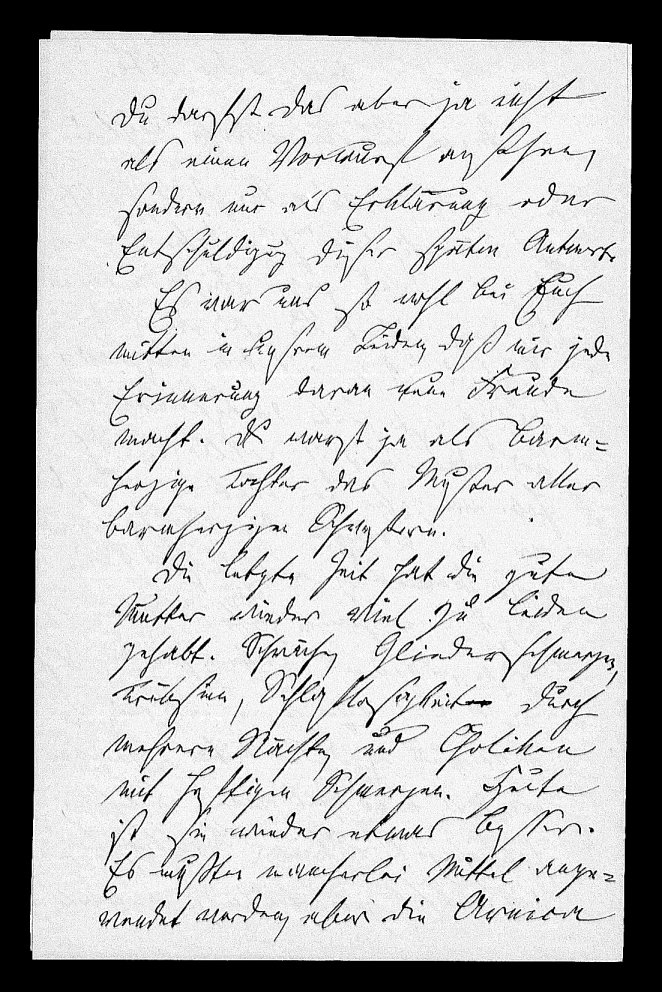 Du darfst das aber ja nicht
als einen Vorwurf ansehen,
sondern nur als Erklärung oder
Entschuldigung dieser späten Antwort.
Es war uns so wohl bei Euch
mitten in unserm Leiden, daß mir jede
Erinnerung daran neue Freude
macht. Du warst ja als barm=
herzige Tochter das Muster aller
barmherzigen Schwestern.
Die letzte Zeit hat die gute
Mutter wieder viel zu leiden
gehabt. Schwäche, Gliederschmerzen,
Trübsinn, Schlaflosigkeit durch
mehrere Nächte, und Coliken
mit heftigen Schmerzen. Heute
ist sie wieder etwas besser.
Es mußten mancherlei Mittel ange=
wendet werden, aber die Arnica